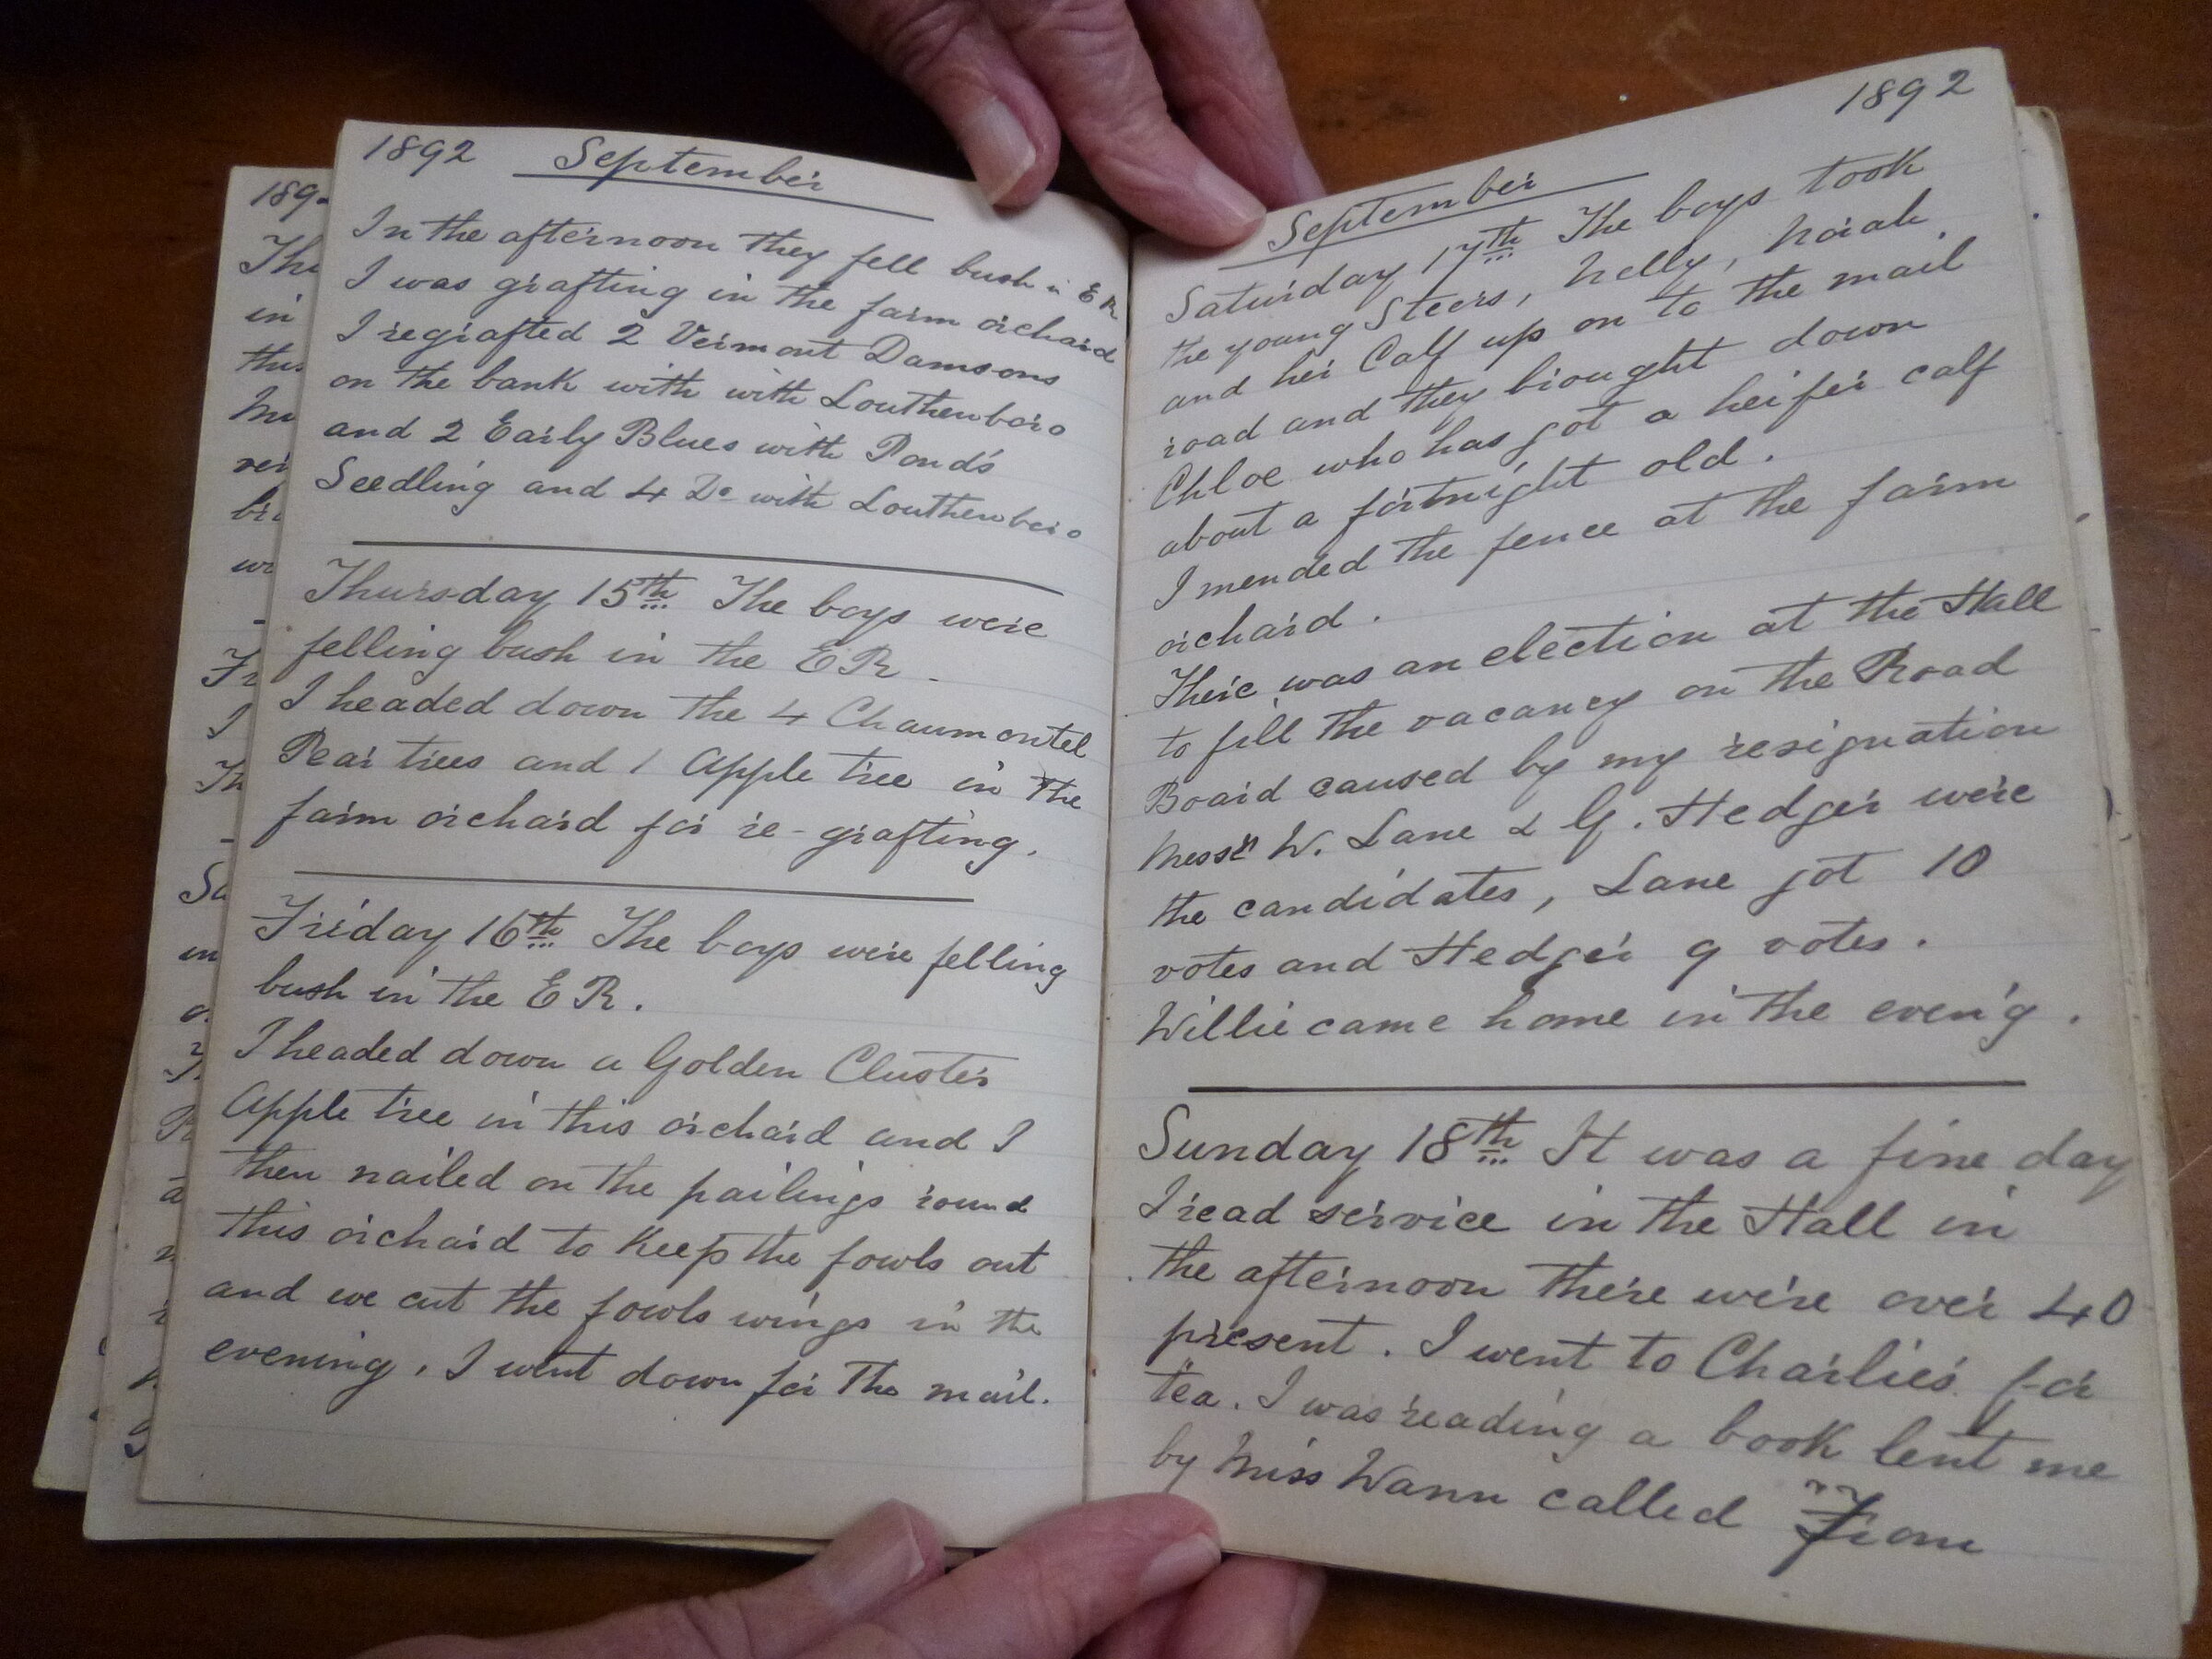 1892 September
In the afternoon they fell bush in E R
I was grafting in the farm orchard
I regrafted 2 Vermont Damsons
on the bank with with Louthenboro
and 2 Early Blues with Pond's
Seedling and 4 Do with Louthenboro
Thursday 15th The boys were
felling bush in the E R.
I headed down the 4 Chaumontel
Pear trees and 1 Apple tree in the
farm orchard for re-grafting.
Friday 16th The boys were felling
bush in the E R.
I headed down a Golden Cluster
Apple tree in this orchard and I
then nailed on the pailings round
this orchard to keep the fowls out
and we cut the fowls wings in the
evening. I went down for the mail.
1892
September
Saturday 17th The boys took
the young Steers, Nelly, Norah
and her Calf up on to the mail
road and they brought down
Chloe who has got a heifer calf
about a fortnight old.
I mended the fence at the farm
orchard.
There was an election at the Hall
to fill the vacancy on the Road
Board caused by my resignation
Messrs W. Lane & G. Hedger were
the candidates, Lane got 10
votes and Hedger 9 votes.
Willie came home in the even'g.
Sunday 18th It was a fine day
I read service in the Hall in
the afternoon there were over 40
present. I went to Charlie's for
tea. I was reading a book lent me
by Miss Wann called From